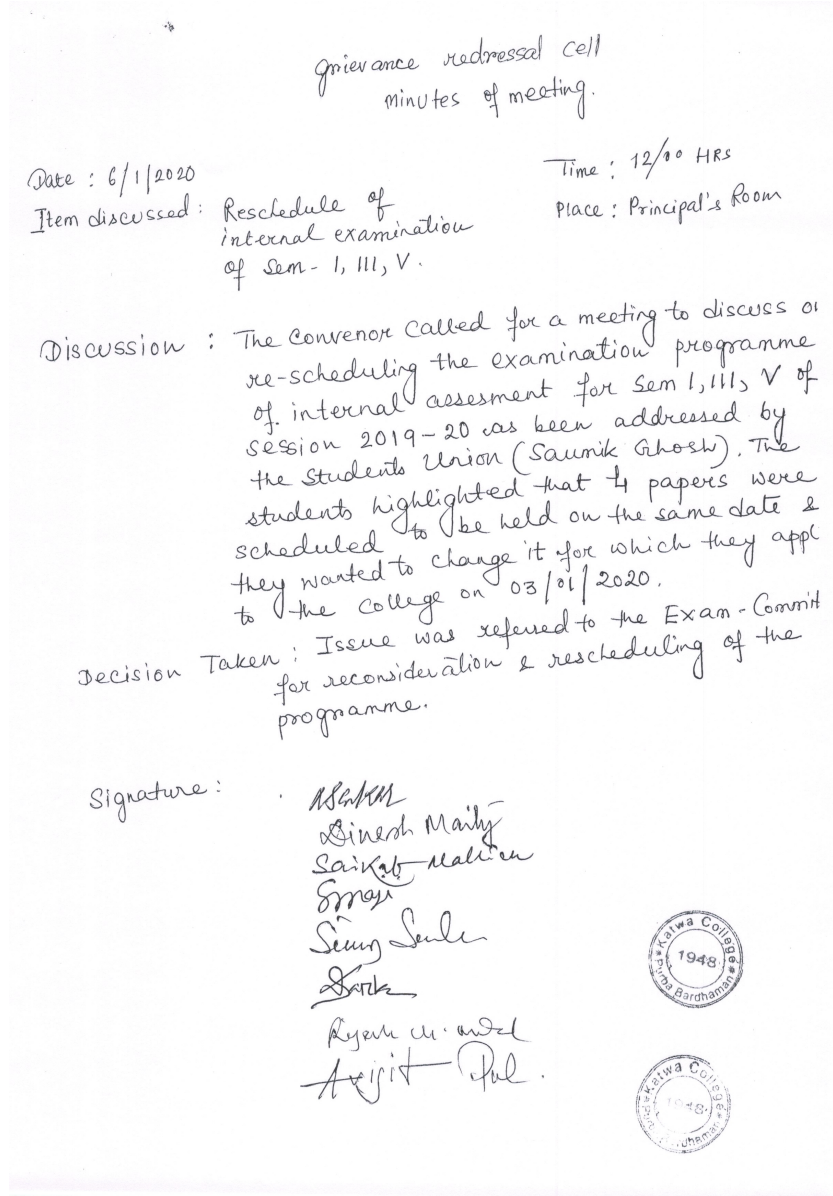 grievance redressal cell
minutes of meeting.
Date : 6/1/2020
Time : 12/00 HRS
Item discussed : Reschedule of
internal examination
of Sem - I, III, V.
Place : Principal's Room
Discussion : The Convenor called for a meeting to discuss
re-scheduling the examination programme
of internal assesment for Sem I, III, V of
session 2019-20 as been addressed by
the Students Union (Saumik Ghosh). The
students highlighted that 4 papers were
scheduled to be held on the same date &
they wanted to change it for which they appl
to the college on 03/01/2020.
Decision Taken : Issue was referred to the Exam-Commit
for reconsideration & rescheduling of the
programme.
Signature :
Dinesh Maity
Saikat
Avijit Pal.
Katwa College
1948
Purba Bardhaman
Katwa College
1948